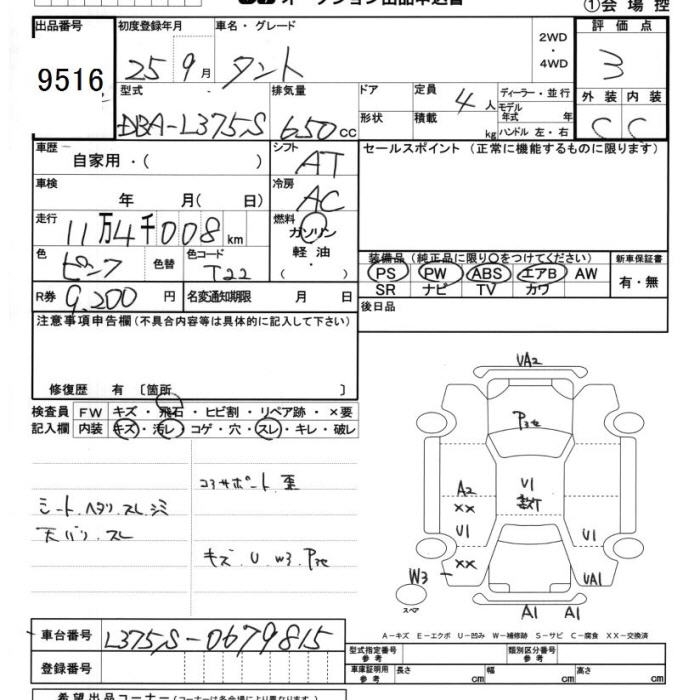 オークション出品申込書
①会場控
出品番号
9516
初度登録年月
25 9月
車名・グレード
タント
2WD
・
4WD
評価点
3
型式
DBA-L375S
排気量
650cc
ドア
定員
4人
ディーラー・並行
外装 内装
C C
形状
積載
kg
モデル
年式 年
ハンドル 左・右
車歴
自家用・( )
シフト
AT
セールスポイント (正常に機能するものに限ります)
車検
年 月( 日)
冷房
AC
走行
11万4千008km
燃料
ガソリン
軽油
( ・ )
色
ピンク
色替
色コード
T22
装備品 (純正品に限り○をつけてください)
新車保証書
PS PW ABS エアB AW
有・無
SR ナビ TV カワ
R券 9,200円
名変通知期限 月 日
後日品
注意事項申告欄(不具合内容等は具体的に記入して下さい)
修復歴 有 〔箇所 〕
検査員 FW キズ・飛石・ヒビ割・リペア跡・×要
記入欄 内装 キズ・汚レ・コゲ・穴・スレ・キレ・破レ
コアサポート 歪
シート、ヘタリ、スレ、シミ
天バリ、スレ
キズ、U、W3、Pヨゴ
UA2
A2
XX
U1
XX
W3
スペア
U1
U1
UA1
A1
A1
A－キズ E－エクボ U－凹み W－補修跡 S－サビ C－腐食 XX－交換済
車台番号
L375S-0679815
登録番号
型式指定番号
参考
類別区分番号
参考
車庫証明用
参考
長さ cm
幅 cm
高さ cm
希望出品コーナー(コーナーは各会場により異なります)